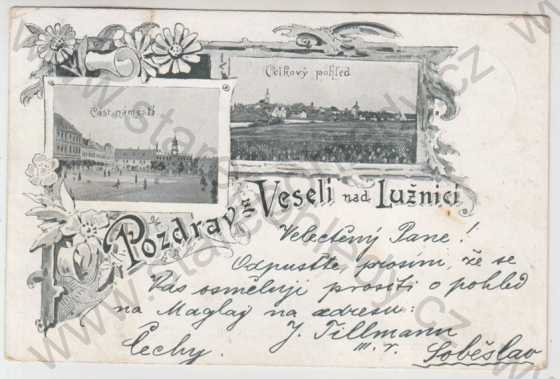 Celkový pohled
Část náměstí
Pozdrav z Veselí nad Lužnicí
Velectěný Pane!
Odpusťte prosím, že se
Vás osměluji prositi o pohled
na Maglaj na adresu:
J. Tillmann
III. r.
Čechy. Soběslav
www.stare-pohlednice.cz